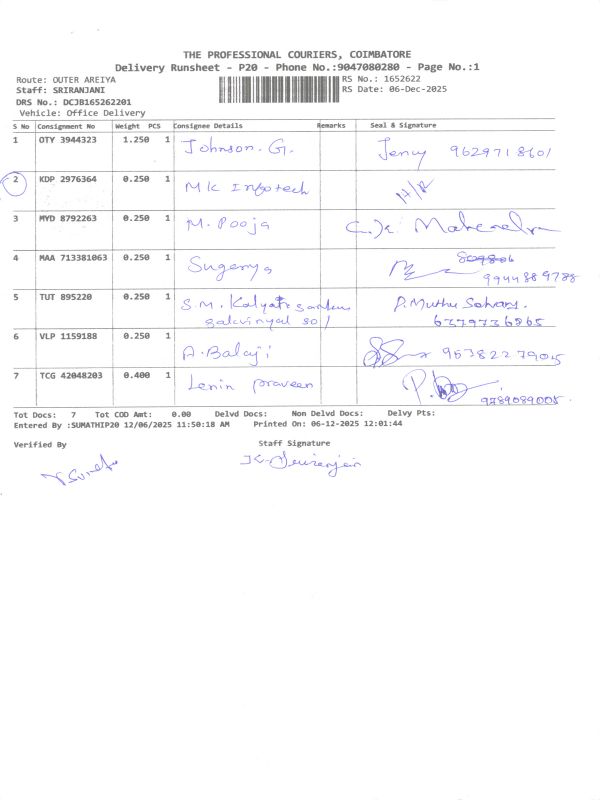 THE PROFESSIONAL COURIERS, COIMBATORE
Delivery Runsheet - P20 - Phone No.:9047080280 - Page No.:1
Route: OUTER AREIYA RS No.: 1652622
Staff: SRIRANJANI RS Date: 06-Dec-2025
DRS No.: DCJB165262201
Vehicle: Office Delivery
S No Consignment No Weight PCS Consignee Details Remarks Seal & Signature
1 OTY 3944323 1.250 1 Johnson. G. Jency 9629718601
2 KDP 2976364 0.250 1 MK Infotech
3 MYD 8792263 0.250 1 M. Pooja
4 MAA 713381063 0.250 1 Sugenya
9944889788
5 TUT 895220 0.250 1 S.M. P. Muthu
6379736865
6 VLP 1159188 0.250 1 A. Balaji 9538227905
7 TCG 42048203 0.400 1 Lenin praveen
9789089005
Tot Docs: 7 Tot COD Amt: 0.00 Delvd Docs: Non Delvd Docs: Delvy Pts:
Entered By :SUMATHIP20 12/06/2025 11:50:18 AM Printed On: 06-12-2025 12:01:44
Verified By Staff Signature